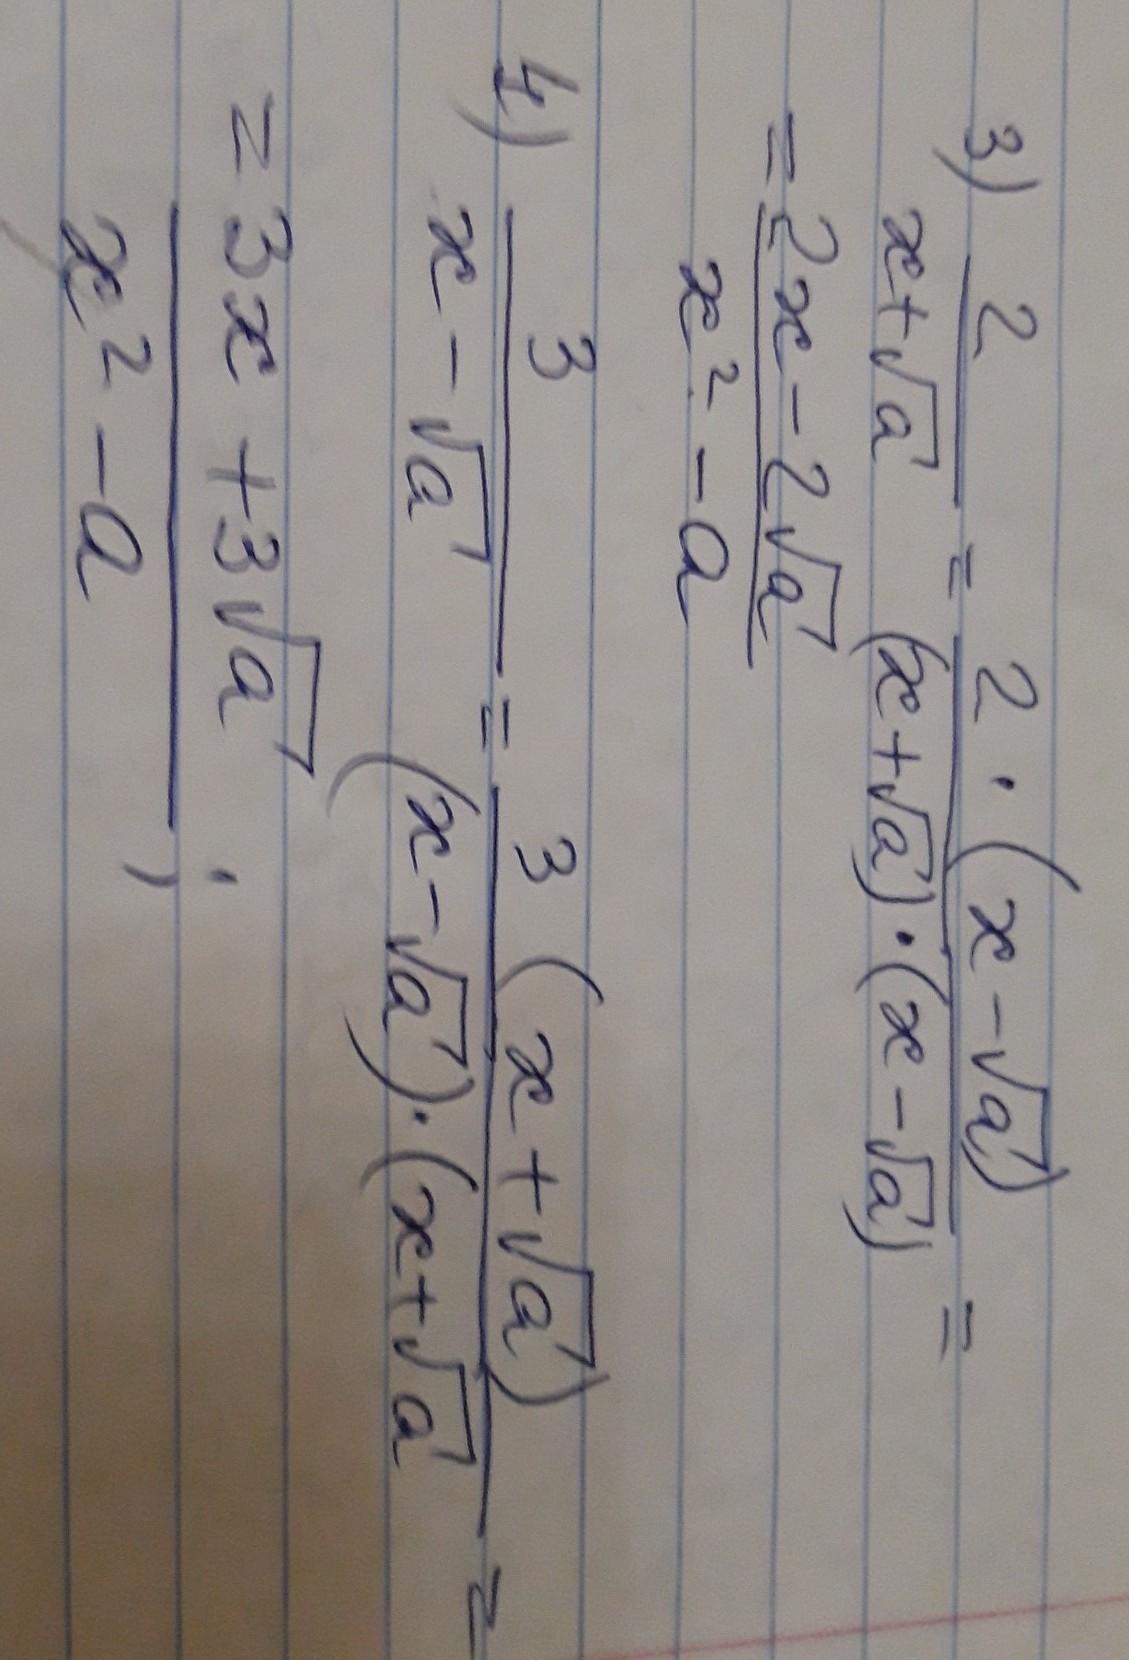 3) 2/(x+√a) = 2·(x-√a)/(x+√a)·(x-√a) =
= 2x-2√a/x²-a
4) 3/(x-√a) = 3(x+√a)/(x-√a)·(x+√a =
= 3x+3√a/x²-a ;